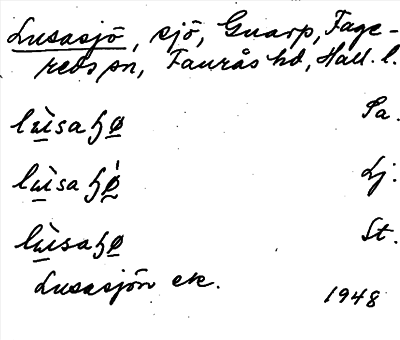 Lusasjö, sjö, Gnarp, Fage-
reds sn, Faurås hd, Hall. l.
lɯ̀saɧø Sa.
lɯ̀saɧǿ Lj.
lɯ̀saɧø St.
Lusasjön ek.
1948